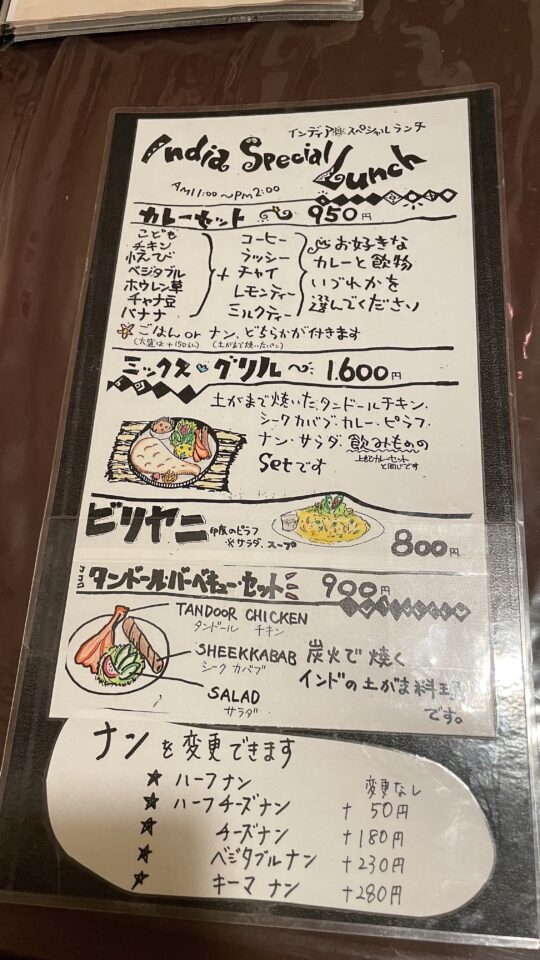 インディア スペシャルランチ
India Special Lunch
AM11:00〜PM2:00
カレーセット 950円
こども
チキン
小えび
ベジタブル
ホウレン草
チャナ豆
バナナ
+
コーヒー
ラッシー
チャイ
レモンティー
ミルクティー
お好きな
カレーと飲物
いづれかを
選んでください
ごはん or ナン、どちらかが付きます
(大盛は+150えん) (土がまで焼いたパン)
ミックス・グリル〜 1.600円
土がまで焼いた、タンドールチキン、
シークカバブ、カレー・ピラフ、
ナン・サラダ、飲みものの
Setです 上記カレーセットと同じです
ビリヤニ 印度のピラフ
※サラダ、スープ
800円
タンドール・バーベキュー・セット 900円
TANDOOR CHICKEN
タンドール チキン
SHEEKKABAB
シーク カバブ
SALAD
サラダ
炭火で焼く
インドの土がま料理
です。
ナンを変更できます
★ ハーフナン 変更なし
★ ハーフチーズナン +50円
★ チーズナン +180円
★ ベジタブルナン +230円
★ キーマナン +280円